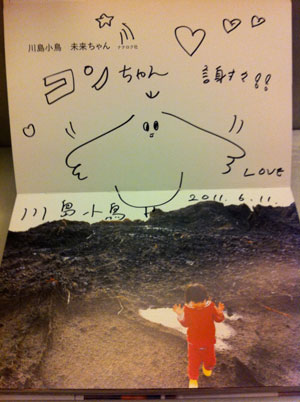 川島小鳥 未来ちゃん ナナロク社
コンちゃん
謝す?!!
LOVE
川島小鳥 2011.6.11.